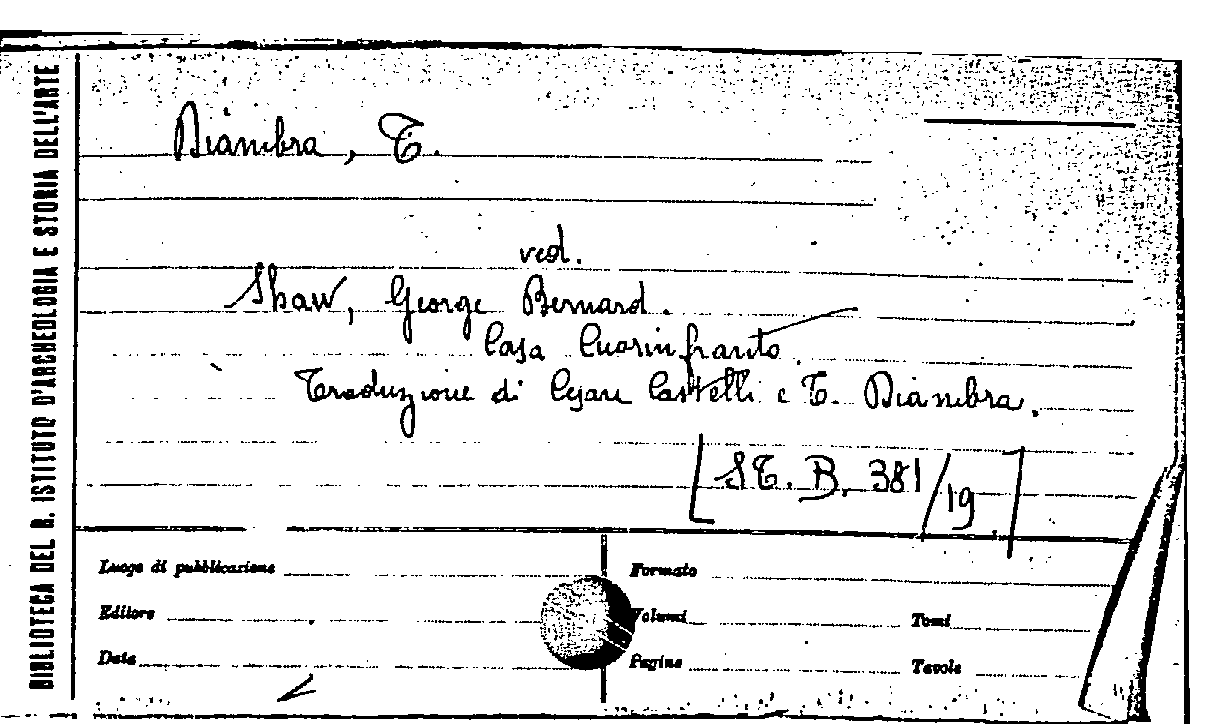 BIBLIOTECA DEL R. ISTITUTO D'ARCHEOLOGIA E STORIA DELL'ARTE
Diambra, T.
ved.
Shaw, George Bernard.
Casa Cuorinfranto.
Traduzione di Cesare Castelli e T. Diambra.
[ST. B. 381/19]
Luogo di pubblicazione
Formato
Editore
Volumi
Tomi
Data
Pagine
Tavole